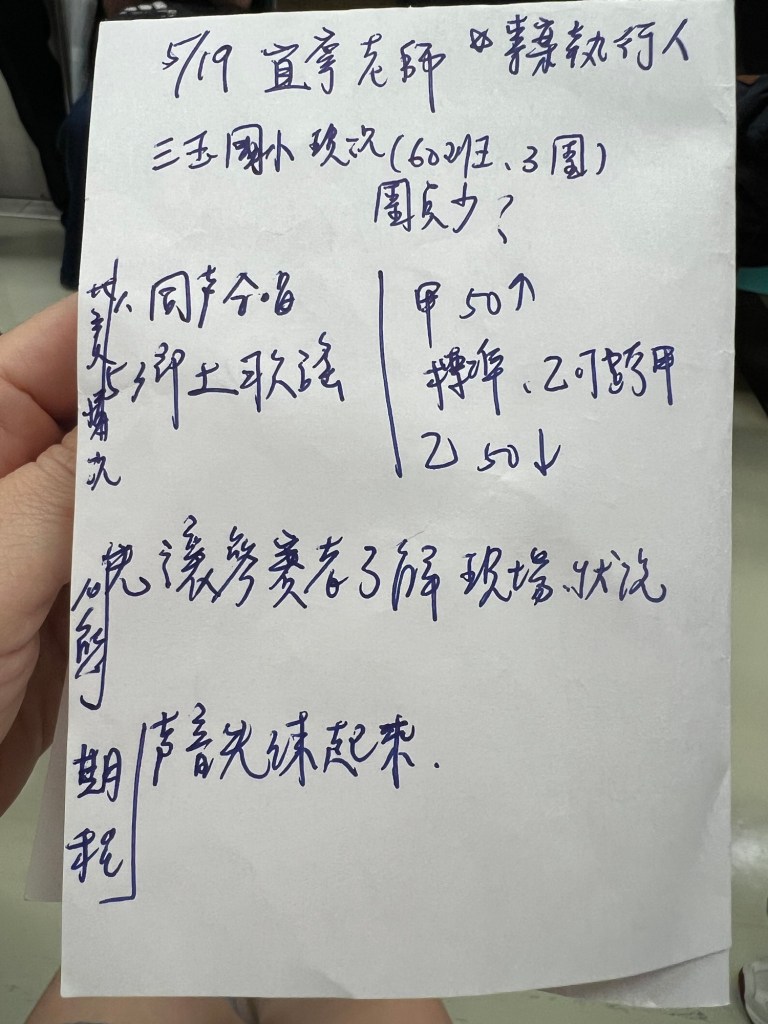 5/19 宜寧老師 專案執行人
三玉國小 現況(60班、3團)
團員少?
比賽情況
同声合唱
鄉土歌謠
甲 50↑
標準、乙可跨甲
乙 50↓
先讓參賽者了解現場狀況
期程
声音先練起來.